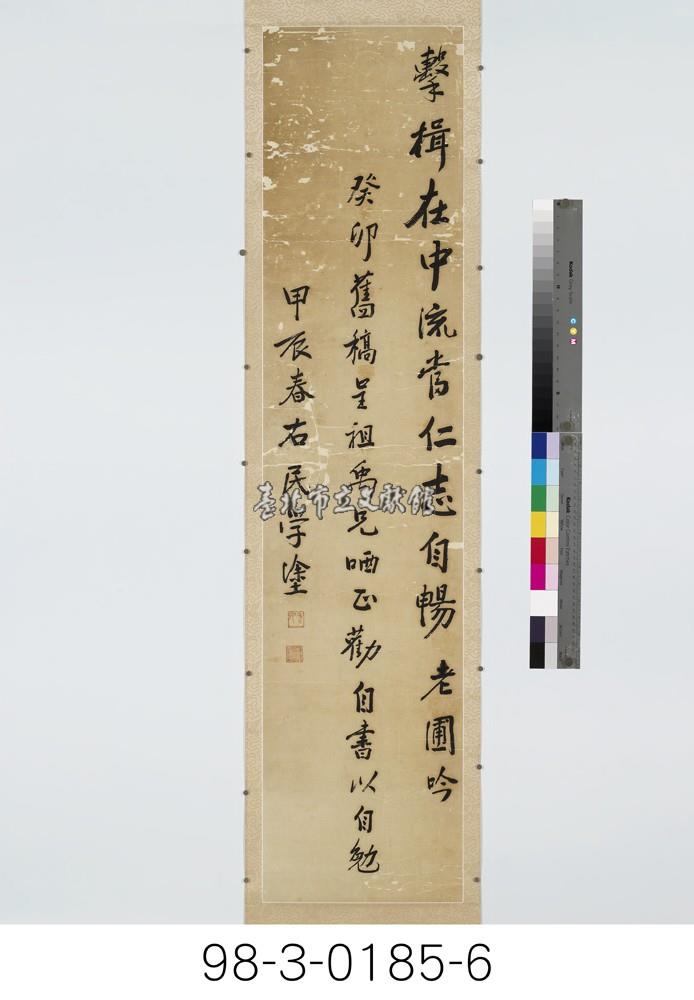 擊楫在中流當仁志自暢 老圃吟
癸卯舊稿呈祖禹兄哂正勸自書以自勉
甲辰春右民学塗
臺北市立文獻館
Kodak Gray Scale
C Y M
Kodak Color Control Patches
98-3-0185-6